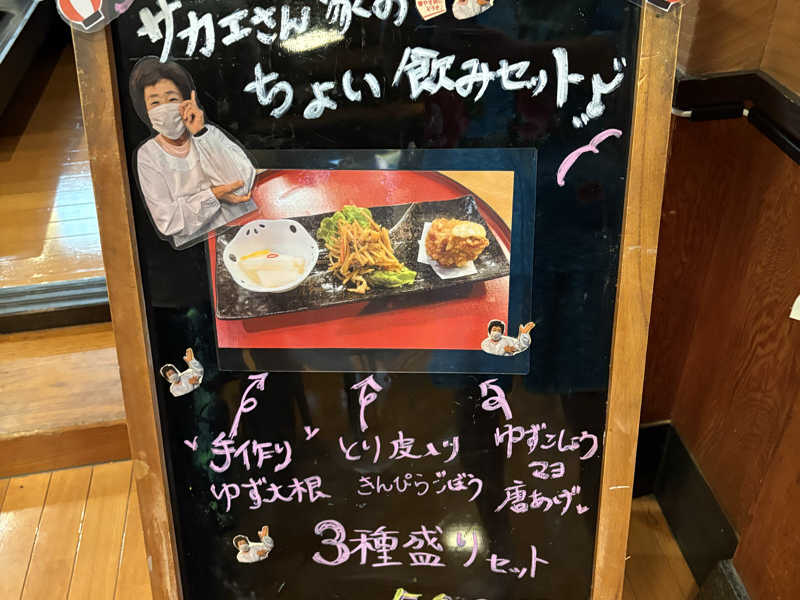 サカエさん家の
ちょい飲みセット♪
手作り
ゆず大根
とり皮入り
きんぴらごぼう
ゆずこしょう
マヨ
唐あげ
3種盛り セット